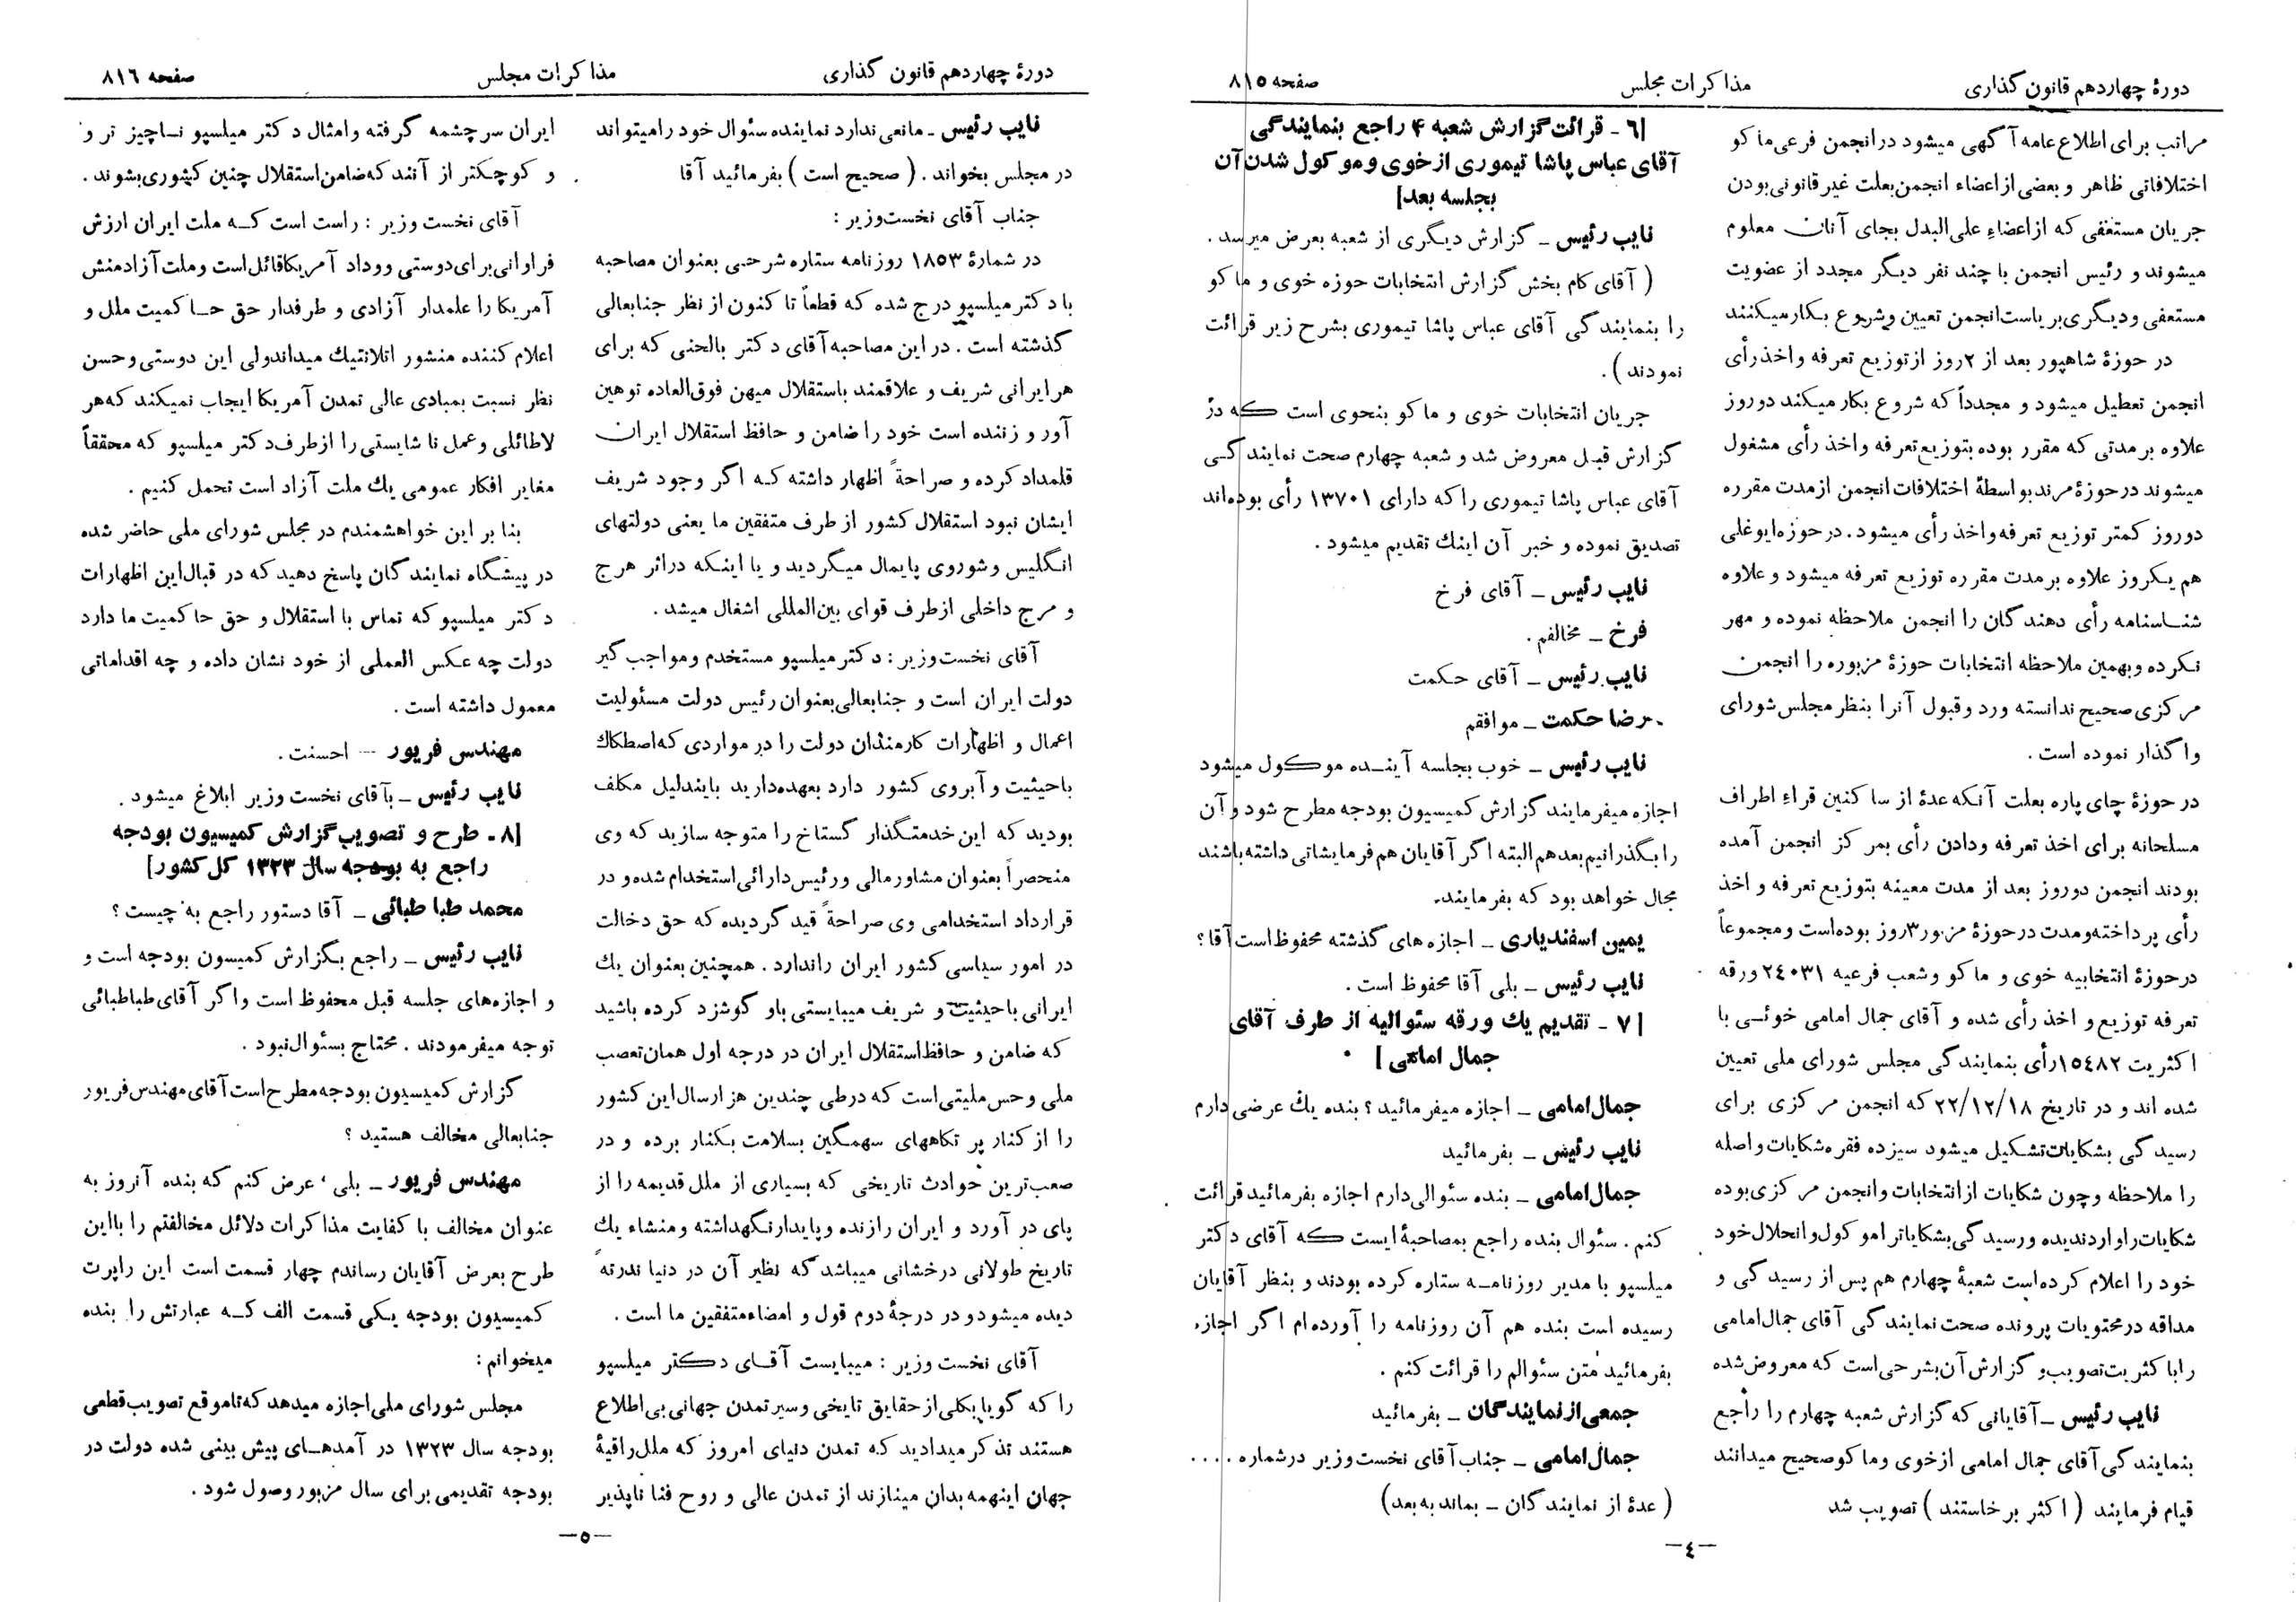 دورهٔ چهاردهم قانون گذاری
مذاکرات مجلس
صفحه ۸۱۵
مراتب برای اطلاع عامه آگهی میشود در انجمن فرعی ماکو
اختلافاتی ظاهر و بعضی از اعضاء انجمن بعلت غیر قانونی بودن
جریان مستعفی که از اعضاء علی البدل بجای آنان معلوم
میشوند و رئیس انجمن با چند نفر دیگر مجدد از عضویت
مستعفی و دیگری بریاست انجمن تعیین و شروع بکار میکنند
در حوزهٔ شاهپور بعد از ۲ روز از توزیع تعرفه و اخذ رأی
انجمن تعطیل میشود و مجدداً که شروع بکار میکند دو روز
علاوه بر مدتی که مقرر بوده بتوزیع تعرفه و اخذ رأی مشغول
میشوند در حوزهٔ مرند بواسطهٔ اختلافات انجمن از مدت مقرره
دو روز کمتر توزیع تعرفه و اخذ رأی میشود. در حوزه ایواغلی
هم یکروز علاوه بر مدت مقرره توزیع تعرفه میشود و علاوه
شناسنامه رأی دهندگان را انجمن ملاحظه نموده و مهر
نکرده و بهمین ملاحظه انتخابات حوزهٔ مزبوره را انجمن
مرکزی صحیح ندانسته و رد و قبول آنرا بنظر مجلس شورای
واگذار نموده است.
در حوزهٔ چای پاره بعلت آنکه عدهٔ از ساکنین قراء اطراف
مسلحانه برای اخذ تعرفه و دادن رأی بمرکز انجمن آمده
بودند انجمن دو روز بعد از مدت معینه بتوزیع تعرفه و اخذ
رأی پرداخته و مدت در حوزهٔ مزبور ۳ روز بوده است و مجموعاً
در حوزهٔ انتخابیه خوی و ماکو و شعب فرعیه ۲٤۰۳۱ ورقه
تعرفه توزیع و اخذ رأی شده و آقای جمال امامی خوئی با
اکثریت ۱٥٤۸۲ رأی بنمایندگی مجلس شورای ملی تعیین
شده اند و در تاریخ ۲۲/۱۲/۱۸ که انجمن مرکزی برای
رسیدگی بشکایات تشکیل میشود سیزده فقره شکایات واصله
را ملاحظه و چون شکایات از انتخابات و انجمن مرکزی بوده
شکایات را وارد ندیده و رسیدگی بشکایات را موکول و انحلال خود
خود را اعلام کرده است شعبهٔ چهارم هم پس از رسیدگی و
مداقه در محتویات پرونده صحت نمایندگی آقای جمال امامی
را با کثریت تصویب و گزارش آن بشرحی است که معروض شده
نایب رئیس ــ آقایانی که گزارش شعبه چهارم را راجع
بنمایندگی آقای جمال امامی از خوی و ماکو صحیح میدانند
قیام فرمایند (اکثر برخاستند) تصویب شد
[٦ - قرائت گزارش شعبه ۴ راجع بنمایندگی
آقای عباس پاشا تیموری از خوی و موکول شدن آن
بجلسه بعد]
نایب رئیس ــ گزارش دیگری از شعبه بعرض میرسد.
(آقای کام بخش گزارش انتخابات حوزه خوی و ماکو
را بنمایندگی آقای عباس پاشا تیموری بشرح زیر قرائت
نمودند).
جریان انتخابات خوی و ماکو بنحوی است که در
گزارش قبل معروض شد و شعبه چهارم صحت نمایندگی
آقای عباس پاشا تیموری را که دارای ۱۳۷۰۱ رأی بوده‌اند
تصدیق نموده و خبر آن اینك تقدیم میشود.
نایب رئیس ــ آقای فرخ
فرخ ــ مخالفم.
نایب رئیس ــ آقای حکمت
رضا حکمت ــ موافقم
نایب رئیس ــ خوب بجلسه آینده موکول میشود
اجازه میفرمایند گزارش کمیسیون بودجه مطرح شود و آن
را بگذرانیم بعد هم البته اگر آقایان هم فرمایشاتی داشته باشند
مجال خواهد بود که بفرمایند.
یمین اسفندیاری ــ اجازه های گذشته محفوظ است آقا؟
نایب رئیس ــ بلی آقا محفوظ است.
[۷ - تقدیم یك ورقه سئوالیه از طرف آقای
جمال امامی]
جمال امامی ــ اجازه میفرمائید؟ بنده یك عرضی دارم
نایب رئیس ــ بفرمائید
جمال امامی ــ بنده سئوالی دارم اجازه بفرمائید قرائت
کنم. سئوال بنده راجع بمصاحبهٔ ایست که آقای دکتر
میلسپو با مدیر روزنامه ستاره کرده بودند و بنظر آقایان
رسیده است بنده هم آن روزنامه را آورده‌ام اگر اجازه
بفرمائید متن سئوالم را قرائت کنم.
جمعی از نمایندگان ــ بفرمائید
جمال امامی ــ جناب آقای نخست وزیر در شماره ....
(عدهٔ از نمایندگان ــ بماند به بعد)
ــ٤ــ
دورهٔ چهاردهم قانون گذاری
مذاکرات مجلس
صفحه ۸۱٦
نایب رئیس ـ مانعی ندارد نماینده سئوال خود را میتواند
در مجلس بخواند. (صحیح است) بفرمائید آقا
جناب آقای نخست وزیر:
در شمارهٔ ۱۸٥۳ روزنامه ستاره شرحی بعنوان مصاحبه
با دکتر میلسپو درج شده که قطعاً تا کنون از نظر جنابعالی
گذشته است. در این مصاحبه آقای دکتر بالحنی که برای
هر ایرانی شریف و علاقمند باستقلال میهن فوق العاده توهین
آور و زننده است خود را ضامن و حافظ استقلال ایران
قلمداد کرده و صراحةً اظهار داشته که اگر وجود شریف
ایشان نبود استقلال کشور از طرف متفقین ما یعنی دولتهای
انگلیس و شوروی پایمال میگردید و یا اینکه در اثر هرج
و مرج داخلی از طرف قوای بین المللی اشغال میشد.
آقای نخست وزیر: دکتر میلسپو مستخدم و مواجب گیر
دولت ایران است و جنابعالی بعنوان رئیس دولت مسئولیت
اعمال و اظهارات کارمندان دولت را در مواردی که اصطکاك
با حیثیت و آبروی کشور دارد بعهده دارید باین دلیل مکلف
بودید که این خدمتگذار گستاخ را متوجه سازید که وی
منحصراً بعنوان مشاور مالی و رئیس دارائی استخدام شده و در
قرارداد استخدامی وی صراحةً قید گردیده که حق دخالت
در امور سیاسی کشور ایران را ندارد. همچنین بعنوان یك
ایرانی با حیثیت و شریف میبایستی باو گوشزد کرده باشید
که ضامن و حافظ استقلال ایران در درجه اول همان تعصب
ملی و حس ملیتی است که در طی چندین هزار سال این کشور
را از کنار پرتگاههای سهمگین بسلامت بکنار برده و در
صعب ترین حوادث تاریخی که بسیاری از ملل قدیمه را از
پای در آورد و ایران را زنده و پایدار نگهداشته و منشاء یك
تاریخ طولانی درخشانی میباشد که نظیر آن در دنیا ندرتهً
دیده میشود و در درجهٔ دوم قول و امضاء متفقین ما است.
آقای نخست وزیر: میبایست آقای دکتر میلسپو
را که گویا بکلی از حقایق تایخی و سیر تمدن جهانی بی اطلاع
هستند تذکر میدادید که تمدن دنیای امروز که ملل راقیهٔ
جهان اینهمه بدان مینازند از تمدن عالی و روح فنا ناپذیر
ایران سر چشمه گرفته و امثال دکتر میلسپو ناچیز تر و
و کوچکتر از آنند که ضامن استقلال چنین کشوری بشوند.
آقای نخست وزیر: راست است که ملت ایران ارزش
فراوانی برای دوستی و وداد آمریکا قائل است و ملت آزادمنش
آمریکا را علمدار آزادی و طرفدار حق حاکمیت ملل و
اعلام کننده منشور اتلانتیك میداند ولی این دوستی و حسن
نظر نسبت بمبادی عالی تمدن آمریکا ایجاب نمیکند که هر
لاطائلی و عمل ناشایستی را از طرف دکتر میلسپو که محققاً
مغایر افکار عمومی یك ملت آزاد است تحمل کنیم.
بنا بر این خواهشمندم در مجلس شورای ملی حاضر شده
در پیشگاه نمایندگان پاسخ دهید که در قبال این اظهارات
دکتر میلسپو که تماس با استقلال و حق حاکمیت ما دارد
دولت چه عکس العملی از خود نشان داده و چه اقداماتی
معمول داشته است.
مهندس فریور ـــ احسنت.
نایب رئیس ــ بآقای نخست وزیر ابلاغ میشود.
[۸ - طرح و تصویب گزارش کمیسیون بودجه
راجع به بودجه سال ۱۳۲۳ کل کشور]
محمد طباطبائی ــ آقا دستور راجع به چیست؟
نایب رئیس ــ راجع بگزارش کمیسون بودجه است و
و اجازه‌های جلسه قبل محفوظ است و اگر آقای طباطبائی
توجه میفرمودند. محتاج بسئوال نبود.
گزارش کمیسیون بودجه مطرح است آقای مهندس فریور
جنابعالی مخالف هستید؟
مهندس فریور ــ بلی، عرض کنم که بنده آنروز به
عنوان مخالف با کفایت مذاکرات دلائل مخالفتم را با این
طرح بعرض آقایان رساندم چهار قسمت است این راپرت
کمیسیون بودجه یکی قسمت الف که عبارتش را بنده
میخوانم:
مجلس شورای ملی اجازه میدهد که تا موقع تصویب قطعی
بودجه سال ۱۳۲۳ در آمدهای پیش بینی شده دولت در
بودجه تقدیمی برای سال مزبور وصول شود.
ــ٥ــ